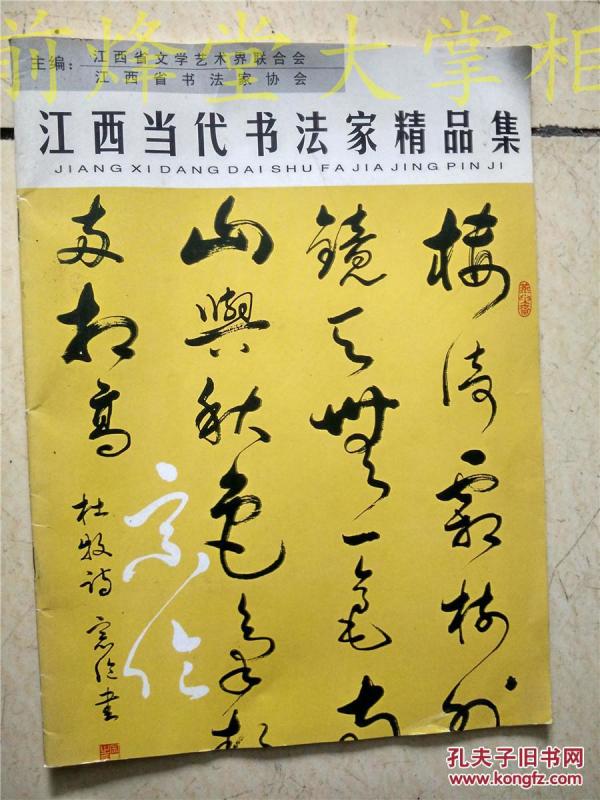 前烽堂大掌
主编：江西省文学艺术界联合会
江西省书法家协会
江西当代书法家精品集
JIANG XI DANG DAI SHU FA JIA JING PIN JI
楼倚霜树外
镜天無一毫南
山與秋色气势
两相高
杜牧诗
孔夫子旧书网
www.kongfz.com